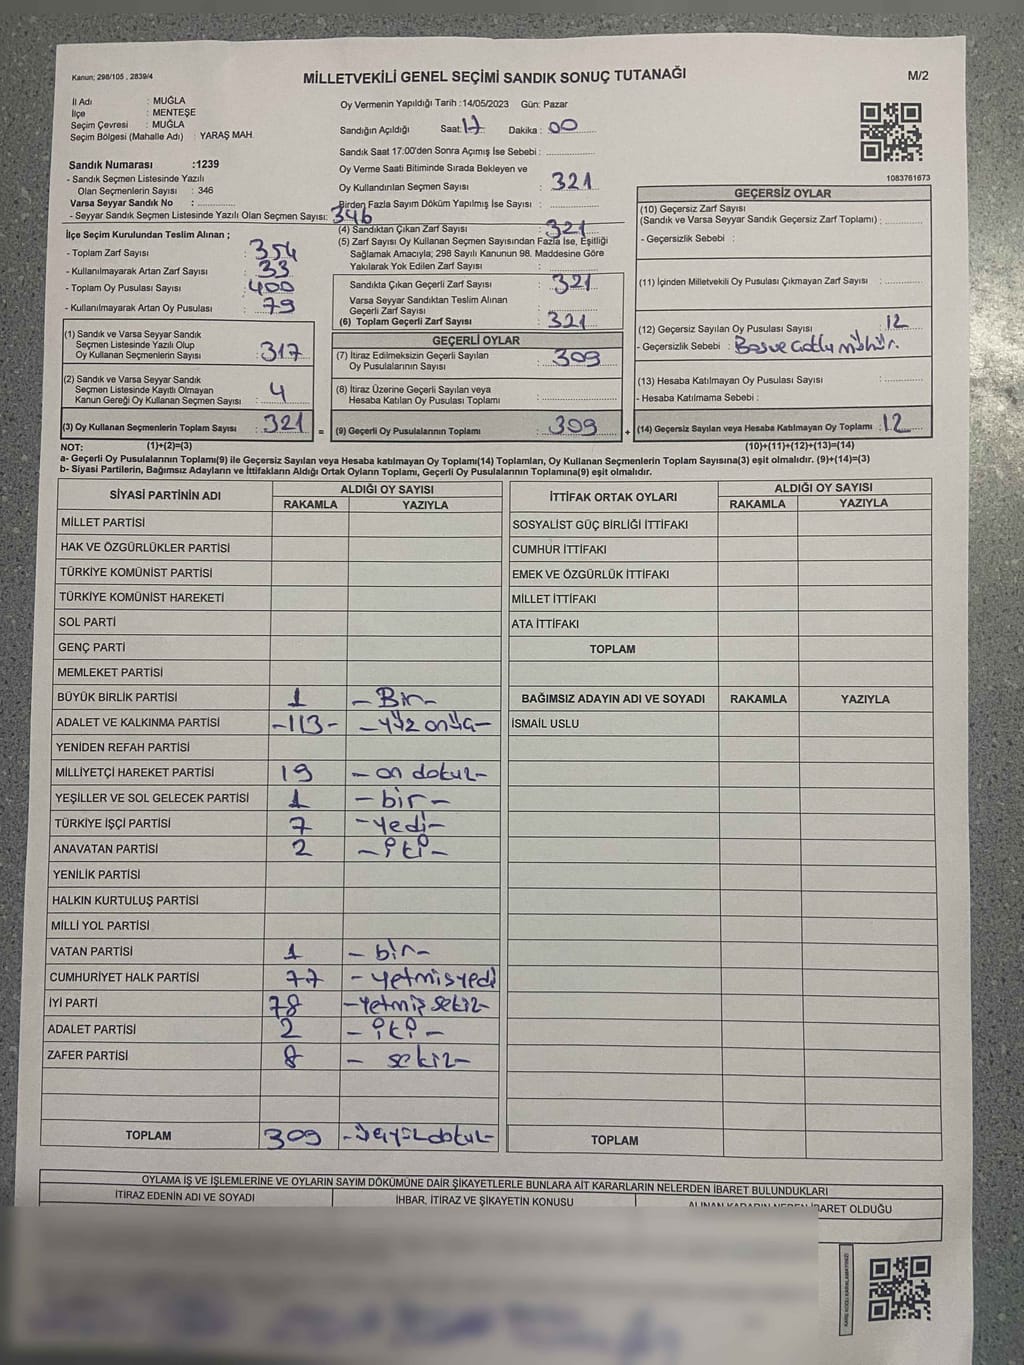 Kanun; 298/105 , 2839/4
MİLLETVEKİLİ GENEL SEÇİMİ SANDIK SONUÇ TUTANAĞI
M/2
İl Adı : MUĞLA
İlçe : MENTEŞE
Seçim Çevresi : MUĞLA
Seçim Bölgesi (Mahalle Adı) : YARAŞ MAH.
Sandık Numarası :1239
- Sandık Seçmen Listesinde Yazılı
Olan Seçmenlerin Sayısı : 346
Varsa Seyyar Sandık No :
- Seyyar Sandık Seçmen Listesinde Yazılı Olan Seçmen Sayısı: 346
İlçe Seçim Kurulundan Teslim Alınan ;
- Toplam Zarf Sayısı : 354
- Kullanılmayarak Artan Zarf Sayısı : 33
- Toplam Oy Pusulası Sayısı : 400
- Kullanılmayarak Artan Oy Pusulası : 79
(1) Sandık ve Varsa Seyyar Sandık
Seçmen Listesinde Yazılı Olup
Oy Kullanan Seçmenlerin Sayısı : 317
(2) Sandık ve Varsa Seyyar Sandık
Seçmen Listesinde Kayıtlı Olmayan
Kanun Gereği Oy Kullanan Seçmen Sayısı : 4
(3) Oy Kullanan Seçmenlerin Toplam Sayısı : 321
Oy Vermenin Yapıldığı Tarih :14/05/2023 Gün: Pazar
Sandığın Açıldığı Saat: 17 Dakika : 00
Sandık Saat 17:00'den Sonra Açımış İse Sebebi :
Oy Verme Saati Bitiminde Sırada Bekleyen ve
Oy Kullandırılan Seçmen Sayısı : 321
Birden Fazla Sayım Döküm Yapılmış İse Sayısı :
(4) Sandıktan Çıkan Zarf Sayısı : 321
(5) Zarf Sayısı Oy Kullanan Seçmen Sayısından Fazla İse, Eşitliği
Sağlamak Amacıyla; 298 Sayılı Kanunun 98. Maddesine Göre
Yakılarak Yok Edilen Zarf Sayısı :
Sandıkta Çıkan Geçerli Zarf Sayısı : 321
Varsa Seyyar Sandıktan Teslim Alınan
Geçerli Zarf Sayısı :
(6) Toplam Geçerli Zarf Sayısı : 321
GEÇERLİ OYLAR
(7) İtiraz Edilmeksizin Geçerli Sayılan
Oy Pusulalarının Sayısı : 309
(8) İtiraz Üzerine Geçerli Sayılan veya
Hesaba Katılan Oy Pusulası Toplamı :
= (9) Geçerli Oy Pusulalarının Toplamı : 309
1083761673
GEÇERSİZ OYLAR
(10) Geçersiz Zarf Sayısı
(Sandık ve Varsa Seyyar Sandık Geçersiz Zarf Toplamı) :
- Geçersizlik Sebebi :
(11) İçinden Milletvekili Oy Pusulası Çıkmayan Zarf Sayısı :
(12) Geçersiz Sayılan Oy Pusulası Sayısı : 12
- Geçersizlik Sebebi :
(13) Hesaba Katılmayan Oy Pusulası Sayısı :
- Hesaba Katılmama Sebebi :
+ (14) Geçersiz Sayılan veya Hesaba Katılmayan Oy Toplamı : 12
NOT: (1)+(2)=(3) (10)+(11)+(12)+(13)=(14)
a- Geçerli Oy Pusulalarının Toplamı(9) ile Geçersiz Sayılan veya Hesaba katılmayan Oy Toplamı(14) Toplamları, Oy Kullanan Seçmenlerin Toplam Sayısına(3) eşit olmalıdır. (9)+(14)=(3)
b- Siyasi Partilerin, Bağımsız Adayların ve İttifakların Aldığı Ortak Oyların Toplamı, Geçerli Oy Pusulalarının Toplamına(9) eşit olmalıdır.
SİYASİ PARTİNİN ADI ALDIĞI OY SAYISI
RAKAMLA YAZIYLA
MİLLET PARTİSİ
HAK VE ÖZGÜRLÜKLER PARTİSİ
TÜRKİYE KOMÜNİST PARTİSİ
TÜRKİYE KOMÜNİST HAREKETİ
SOL PARTİ
GENÇ PARTİ
MEMLEKET PARTİSİ
BÜYÜK BİRLİK PARTİSİ 1 - Bir -
ADALET VE KALKINMA PARTİSİ -113- - yüz onüç -
YENİDEN REFAH PARTİSİ
MİLLİYETÇİ HAREKET PARTİSİ 19 - on dokuz -
YEŞİLLER VE SOL GELECEK PARTİSİ 1 - bir -
TÜRKİYE İŞÇİ PARTİSİ 7 - yedi -
ANAVATAN PARTİSİ 2 - iki -
YENİLİK PARTİSİ
HALKIN KURTULUŞ PARTİSİ
MİLLİ YOL PARTİSİ
VATAN PARTİSİ 1 - bir -
CUMHURİYET HALK PARTİSİ 77 - yetmişyedi
İYİ PARTİ 78 - yetmiş sekiz -
ADALET PARTİSİ 2 - iki -
ZAFER PARTİSİ 8 - sekiz -
TOPLAM 309 - üçyüzdokuz -
İTTİFAK ORTAK OYLARI ALDIĞI OY SAYISI
RAKAMLA YAZIYLA
SOSYALİST GÜÇ BİRLİĞİ İTTİFAKI
CUMHUR İTTİFAKI
EMEK VE ÖZGÜRLÜK İTTİFAKI
MİLLET İTTİFAKI
ATA İTTİFAKI
TOPLAM
BAĞIMSIZ ADAYIN ADI VE SOYADI RAKAMLA YAZIYLA
İSMAİL USLU
TOPLAM
OYLAMA İŞ VE İŞLEMLERİNE VE OYLARIN SAYIM DÖKÜMÜNE DAİR ŞİKAYETLERLE BUNLARA AİT KARARLARIN NELERDEN İBARET BULUNDUKLARI
İTİRAZ EDENİN ADI VE SOYADI İHBAR, İTİRAZ VE ŞİKAYETİN KONUSU ALINAN KARARIN NEDEN İBARET OLDUĞU